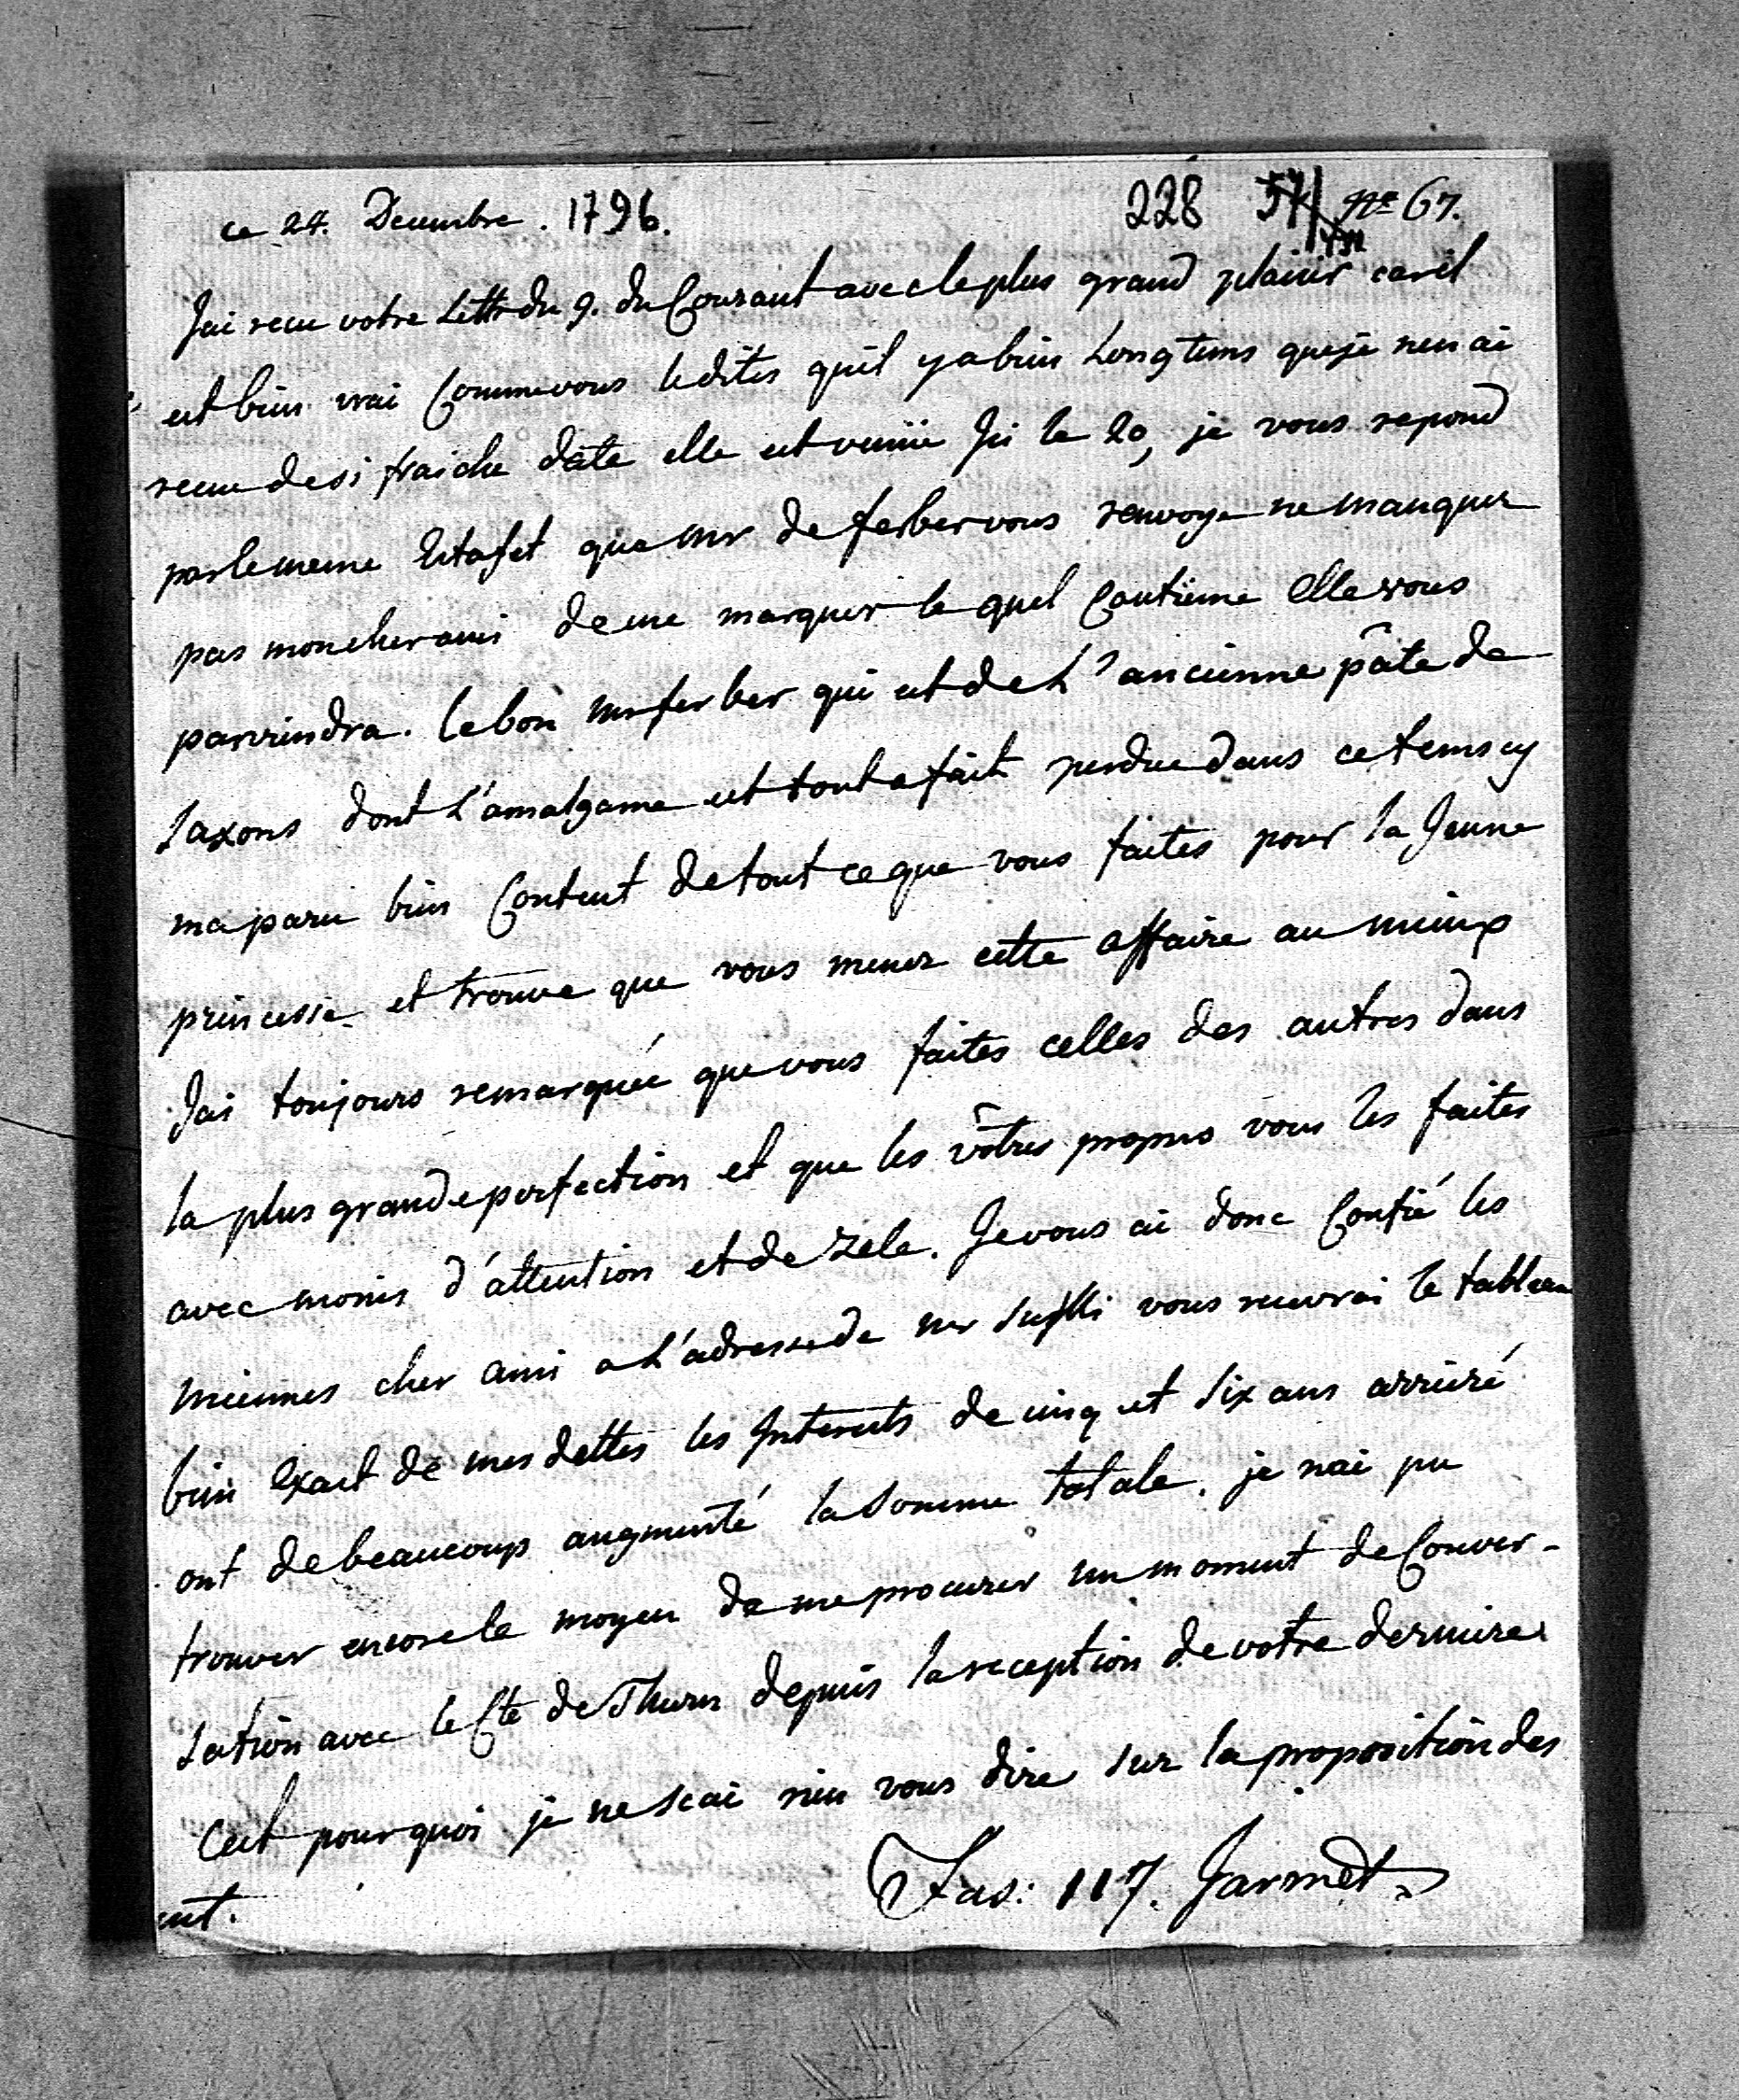 ce 24. Decembre. 1796.
228 57 No 67.
Jai recue votre Lettre du 9. du Courant avec le plus grand plaisir car il
est bien vrai Comme vous le dites quil y a bien Longtems que je nen ai
recue de si fraiche date elle est venüe Ici le 20, je vous repond
par le meme Estafet que mr de ferber vous renvoye ne manquez
pas mon cher ami de me marquer le quel Cantieme Elle vous
parviendra. le bon mr ferber qui est de L'ancienne pâte de
Saxons dont L'amalgame est tout a fait perdue dans ce tems cy
ma paru bien Content de tout ce que vous faites pour la Jeune
princesse et trouve que vous menez cette affaire au mieux
Jai toujours remarquée que vous faites celles des autres dans
la plus grande perfection et que les vôtres propres vous les faites
avec moins d'attention et de zele. Je vous ai donc Confié les
miennes cher ami a L'adresse de mr vous recevrai le tableau
bien Exact de mes dettes les Interests de cinq et Six ans arrieré
ont de beaucoup augmenté la Somme totale. je nai pu
trouver encore le moyen de me procurer un moment de Conver-
sation avec le Cte de Thurn depuis la reception de votre derniere
Cest pourquoi je ne scai rien vous dire sur la proposition des
Fas: 117. Jarmet
ent.